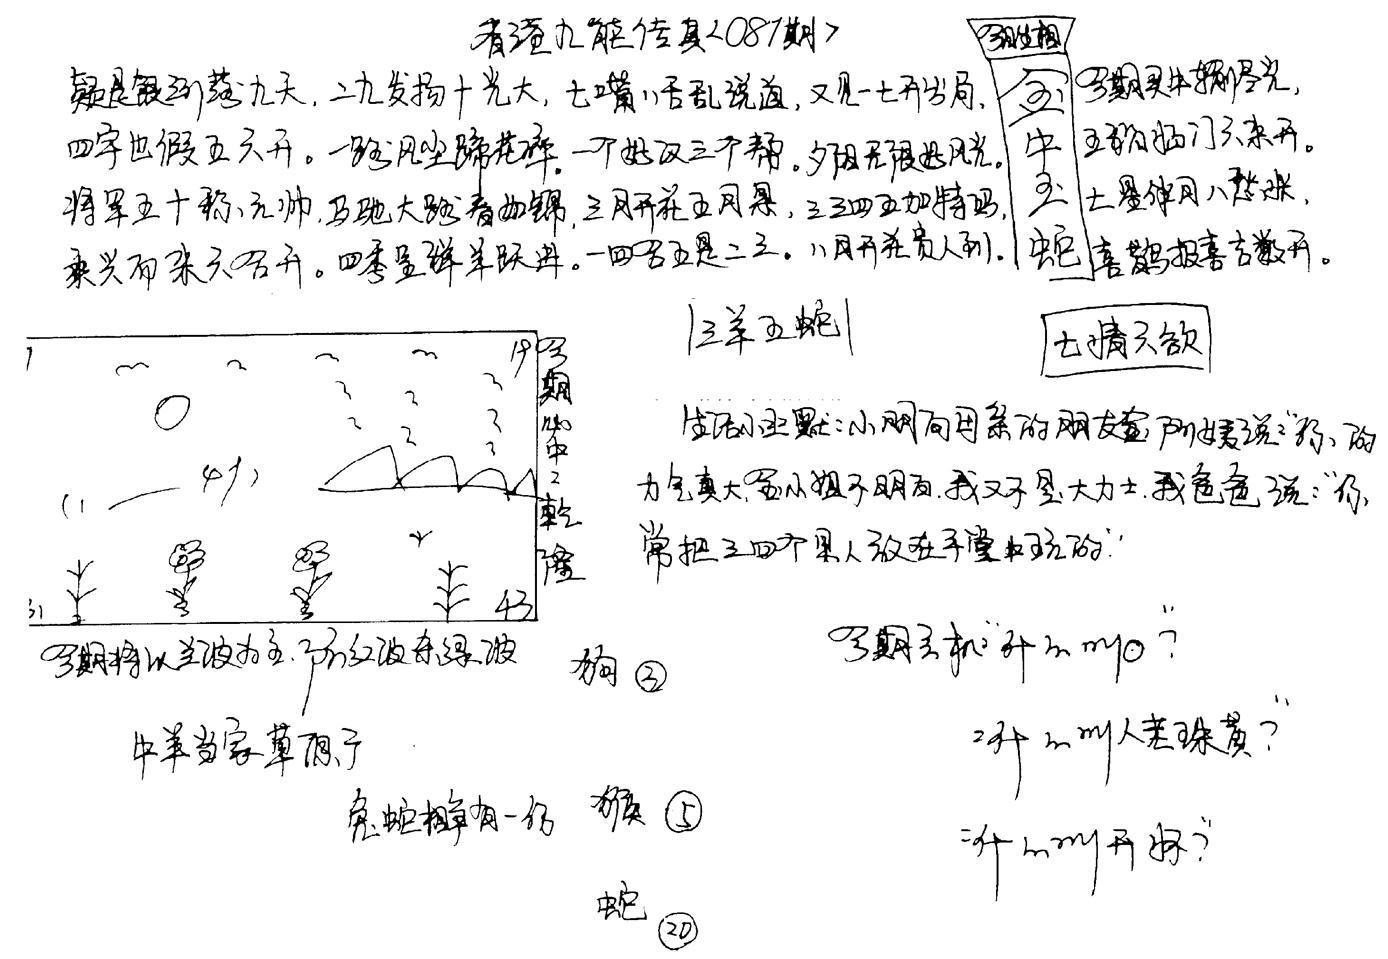 香港九龍传真<081期>
疑是银河落九天，二九发扬十光大，七嘴八舌乱说道，又见一七开当局，
四字也假五六开。一路风尘蹄花碎。一个好汉三个帮。夕阳无限好风光。
将军五十称元帅，马驰大路春如锦，三月开花五月果，三三四五加特码，
乘兴而来六合开。四季呈祥羊跃进。一四合五是二三。八月开花贵人到。
今期生相
金中玉蛇
今期买中赚尽光，
五福临门六来开。
七星伴月八愁眠，
喜鹊报喜吉数开。
三羊五蛇
七情六欲
1
19
4
31
43
今期必中：乾隆
今期将以兰波为主，防红波杀绿波
牛羊当家草原子
兔蛇相争有一份
狗 ③
猴 ⑤
蛇 ⑳
生活小幽默：小朋向母亲的朋友金阿姨说：“你的
力气真大，金小姐不明白，我又不是大力士，我爸爸说：“你
常把三四个男人放在手掌中玩的”
今期玄机“什么叫”？
“什么叫人老珠黄？”
“什么叫开怀？”